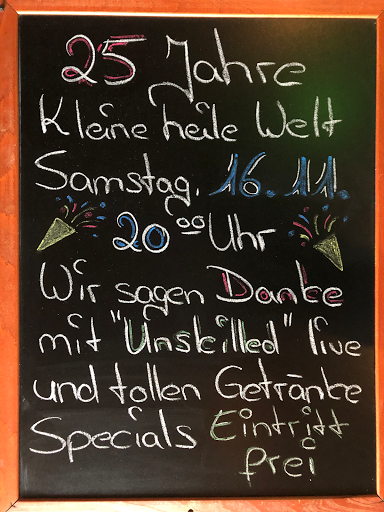 25 Jahre
Kleine heile Welt
Samstag, 16.11.
20⁰⁰ Uhr
Wir sagen Danke
mit "Unskilled" live
und tollen Getränke
Specials Eintritt
frei